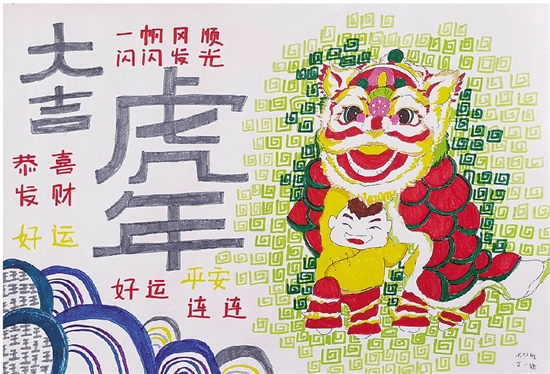 大吉
一帆风顺
闪闪发光
虎年
恭喜
发财
好运
好运
平安
连连